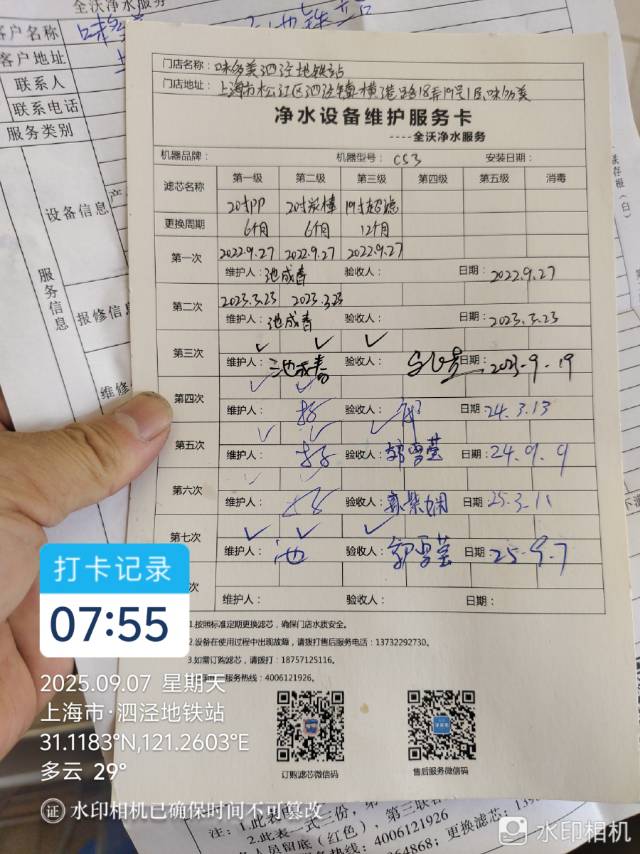 全沃净水服务
客户名称
客户地址
联系人
联系电话
服务类别
设备信息
服务信息
报修信息
门店名称：味多美泗泾地铁站
门店地址：上海市松江区泗泾镇横港路18弄19号1层味多美
净水设备维护服务卡
----全沃净水服务
机器品牌： 机器型号：CS3 安装日期：
滤芯名称 第一级 第二级 第三级 第四级 第五级 消毒
20寸PP 20寸炭棒 19寸超滤
更换周期 6个月 6个月 12个月
第一次 2022.9.27 2022.9.27 2022.9.27
维护人：池成春 验收人： 日期：2022.9.27
第二次 2023.3.23 2023.3.23
维护人：池成春 验收人： 日期：2023.3.23
第三次 ✓ ✓ ✓
维护人：池成春 验收人： 日期：2023.9.19
第四次 ✓ ✓
维护人： 验收人： 日期：24.3.13
第五次 ✓ ✓ ✓
维护人： 验收人：郭雪莹 日期：24.9.9
第六次 ✓ ✓
维护人： 验收人： 日期：25.3.11
第七次 ✓ ✓ ✓
维护人：池 验收人：郭雪莹 日期：25.9.7
次
维护人： 验收人： 日期：
1.按照标准定期更换滤芯，确保门店水质安全。
2.设备在使用过程中出现故障，请拨打售后服务电话：13732292730。
3.如需订购滤芯，请拨打：18757125116。
服务热线：4006121926。
订购滤芯微信码 售后服务微信码
打卡记录
07:55
2025.09.07 星期天
上海市·泗泾地铁站
31.1183°N,121.2603°E
多云 29°
证 水印相机已确保时间不可篡改
水印相机